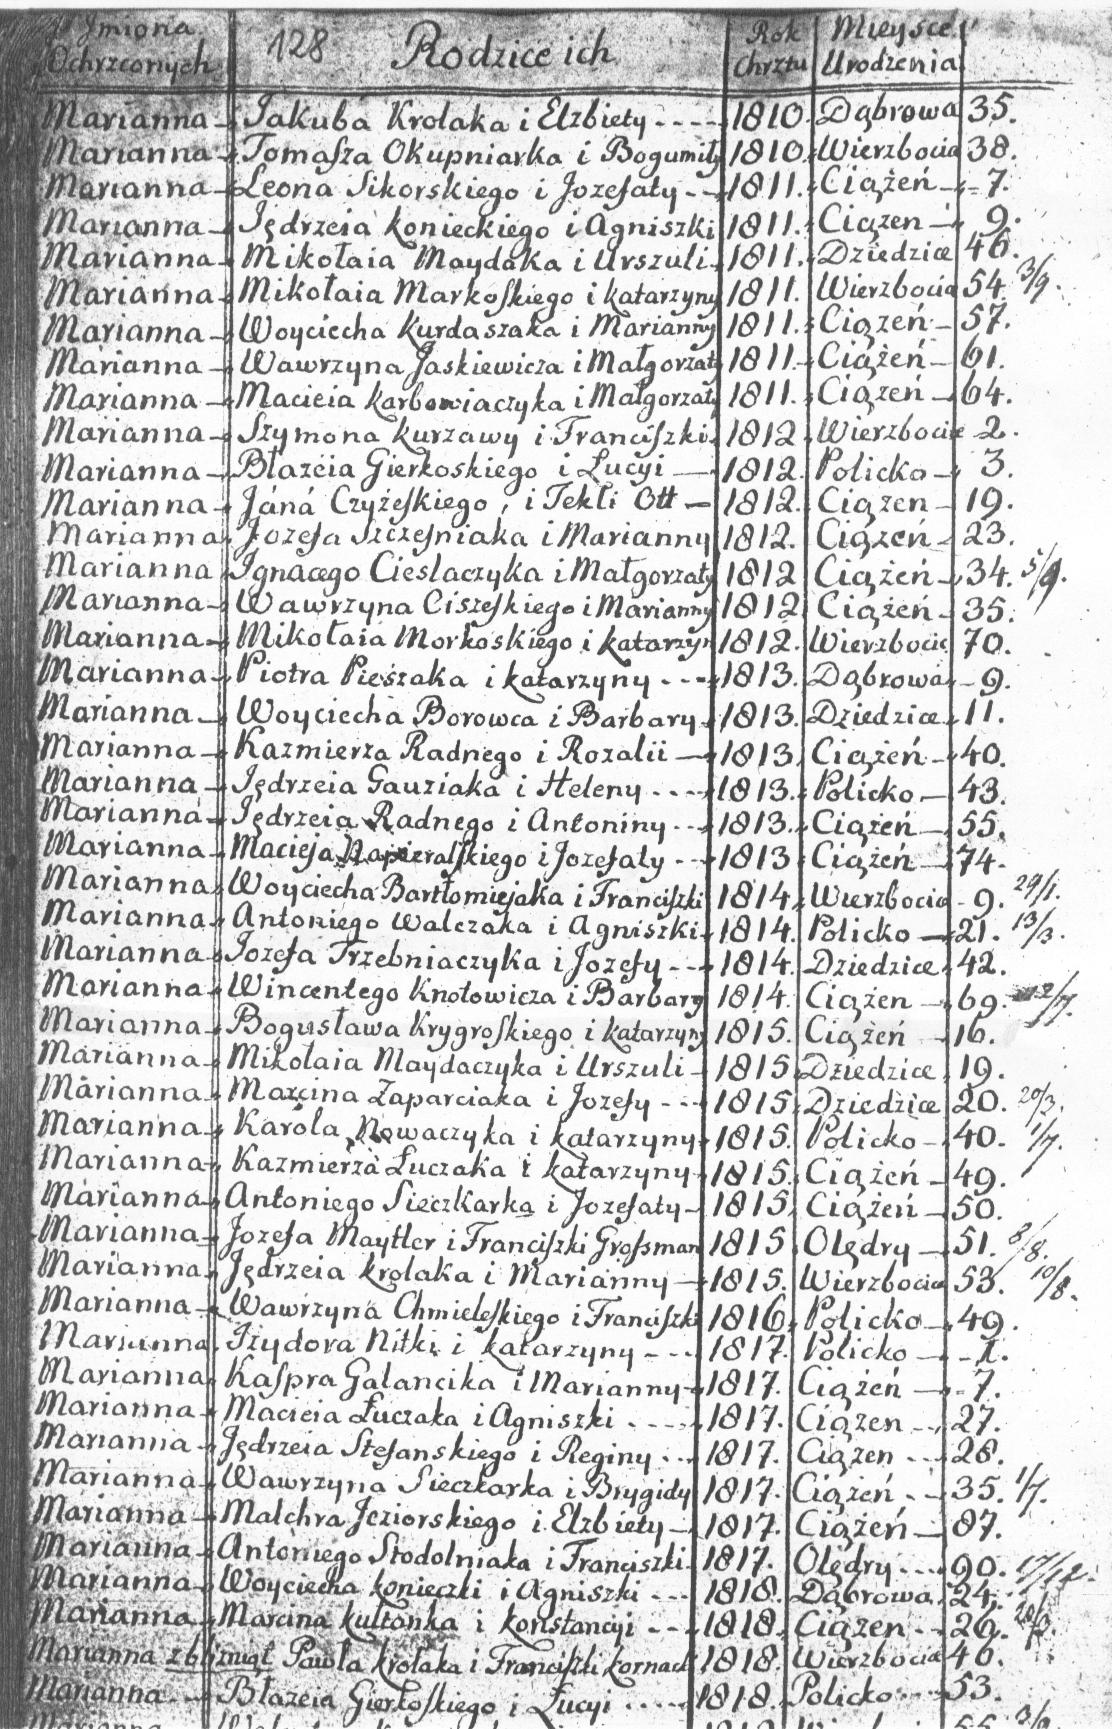 Jmiona Ochrzconych 128 Rodzice ich Rok Chrztu Mieysce Urodzenia
Marianna Jakuba Krolaka i Elzbiety 1810 Dąbrowa 35.
Marianna Tomasza Okupniarka i Bogumiły 1810 Wierzbocia 38.
Marianna Leona Sikorskiego i Jozefaty 1811. Ciążeń 7.
Marianna Jędrzeia Konieckiego i Agniszki 1811. Ciązen 9.
Marianna Mikołaia Maydaka i Urszuli 1811. Dziedzice 46.
Marianna Mikołaia Markoſkiego i Katarzyny 1811. Wierzbocia 54 3/9.
Marianna Woyciecha Kurdaszaka i Marianny 1811. Ciązeń 57.
Marianna Wawrzyna Jaskiewicza i Małgorzaty 1811. Ciążeń 61.
Marianna Macieia Karbowiaczyka i Małgorzaty 1811. Ciązeń 64.
Marianna Szymona Kurzawy i Franciſzki 1812 Wierzbocie 2.
Marianna Błazeia Gierkoskiego i Łucyi 1812. Policko 3.
Marianna Jana Czyżeſkiego, i Tekli Ott 1812. Ciązen 19.
Marianna Jozefa Szczeſniaka i Marianny 1812. Ciązeń 23.
Marianna Ignacego Cieslaczyka i Małgorzaty 1812 Ciążeń 34. 5/9.
Marianna Wawrzyna Ciszeſkiego i Marianny 1812 Ciążeń 35.
Marianna Mikołaia Morkoskiego i Katarzyn 1812. Wierzbocie 70.
Marianna Piotra Pieszaka i Katarzyny 1813. Dąbrowa 9.
Marianna Woyciecha Borowca i Barbary 1813. Dziedzice 11.
Marianna Kazmierza Radnego i Rozalii 1813 Ciążeń 40.
Marianna Jędrzeia Gauziaka i Heleny 1813. Policko 43.
Marianna Jędrzeia Radnego i Antoniny 1813. Ciążeń 55.
Marianna Macieja Napieralſkiego i Jozefaty 1813 Ciążeń 74.
Marianna Woyciecha Bartłomiejaka i Franciſzki 1814 Wierzbocia 9. 29/1.
Marianna Antoniego Walczaka i Agniszki 1814. Policko 21. 13/3.
Marianna Jozefa Trzebniaczyka i Jozefy 1814. Dziedzice 42.
Marianna Wincentego Knotowicza i Barbary 1814. Ciązen 69. 2/7.
Marianna Bogusława Krygroſkiego i Katarzyny 1815. Ciążeń 16.
Marianna Mikołaia Maydaczyka i Urszuli 1815 Dziedzice 19.
Marianna Marcina Zaparciaka i Jozefy 1815 Dziedzice 20. 20/3.
Marianna Karola Nowaczyka i Katarzyny 1815. Policko 40. 1/7.
Marianna Kazmierza Łuczaka i Katarzyny 1815. Ciążeń 49.
Marianna Antoniego Sieczkarka i Jozefaty 1815 Ciążeń 50.
Marianna Jozefa Maytler i Franciſzki Groſsman 1815 Olędry 51. 8/8.
Marianna Jędrzeia Krolaka i Marianny 1815. Wierzbocia 53. 10/8.
Marianna Wawrzyna Chmieleſkiego i Franciſzki 1816 Policko 49.
Marianna Jzydora Nitki i Katarzyny 1817. Policko 1.
Marianna Kaſpra Galancika i Marianny 1817. Ciążeń 7.
Marianna Macieia Łuczaka i Agniszki 1817. Ciązen 27.
Marianna Jędrzeia Stefanskiego i Reginy 1817. Ciązen 28.
Marianna Wawrzyna Sieczkarka i Brygidy 1817. Ciążeń 35. 1/7.
Marianna Malchra Jeziorskiego i Elzbiety 1817. Ciążeń 87.
Marianna Antoniego Stodolniaka i Franciszki 1817. Olędry 90. 17/12.
Marianna Woyciecha Konieczki i Agniszki 1818. Dąbrowa 24.
Marianna Marcina Kultonka i Konstancyi 1818. Ciązen 26.
Marianna z bliznięt Pawła Krolaka i Franciſzki Kornacki 1818. Wierzbocie 46.
Marianna Błazeia Gierkoſkiego i Łucyi 1818. Policko 53.
Marianna